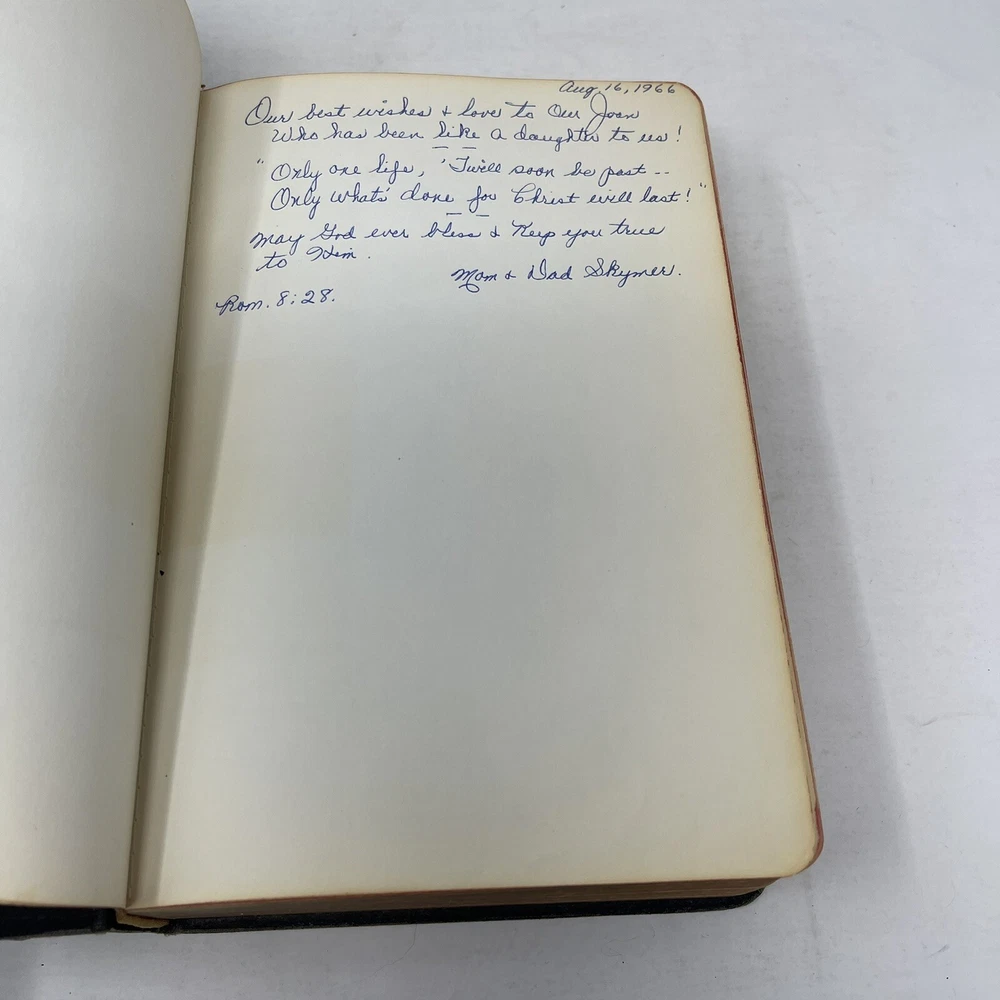 Aug 16, 1966
Our best wishes & love to Our Joan
Who has been like a daughter to us!
"Only one life, 'Twill soon be past --
Only what's done for Christ will last!"
May God ever bless & Keep you true
to Him.
Mom & Dad Skymer.
Rom. 8:28.